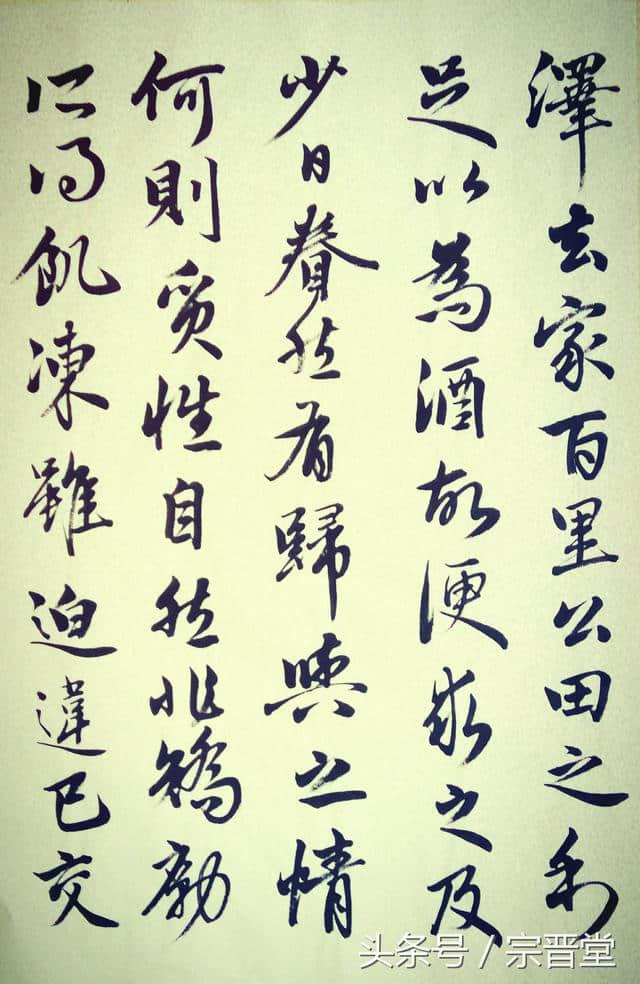 澤去家百里公田之利
足以為酒故便求之及
少日眷然有歸歟之情
何則質性自然非矯勵
所得飢凍雖迫違己交
头条号 / 宗晋堂